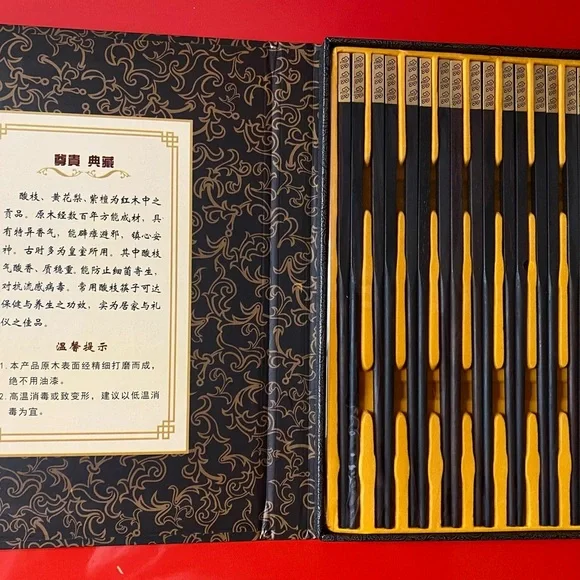 尊貴 典藏
酸枝、黄花梨、紫檀为红木中之
贡品。原木经数百年方能成材，具
有特异香气，能辟瘴避邪、镇心安
神，古时多为皇室所用。其中酸枝
气酸香、质稳重，能防止细菌寄生，
对抗流感病毒。常用酸枝筷子可达
保健与养生之功效，实为居家与礼
仪之佳品。
溫馨提示
1.本产品原木表面经精细打磨而成，
绝不用油漆。
2.高温消毒或致变形，建议以低温消
毒为宜。